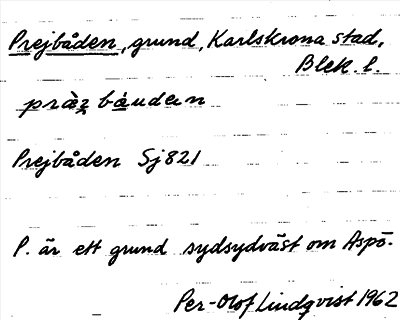 Prejbåden, grund, Karlskrona stad,
Blek. l.
præ̀ʒ bá̤udən
Prejbåden Sj 821
P. är ett grund sydsydväst om Aspö.
Per-Olof Lindqvist 1962